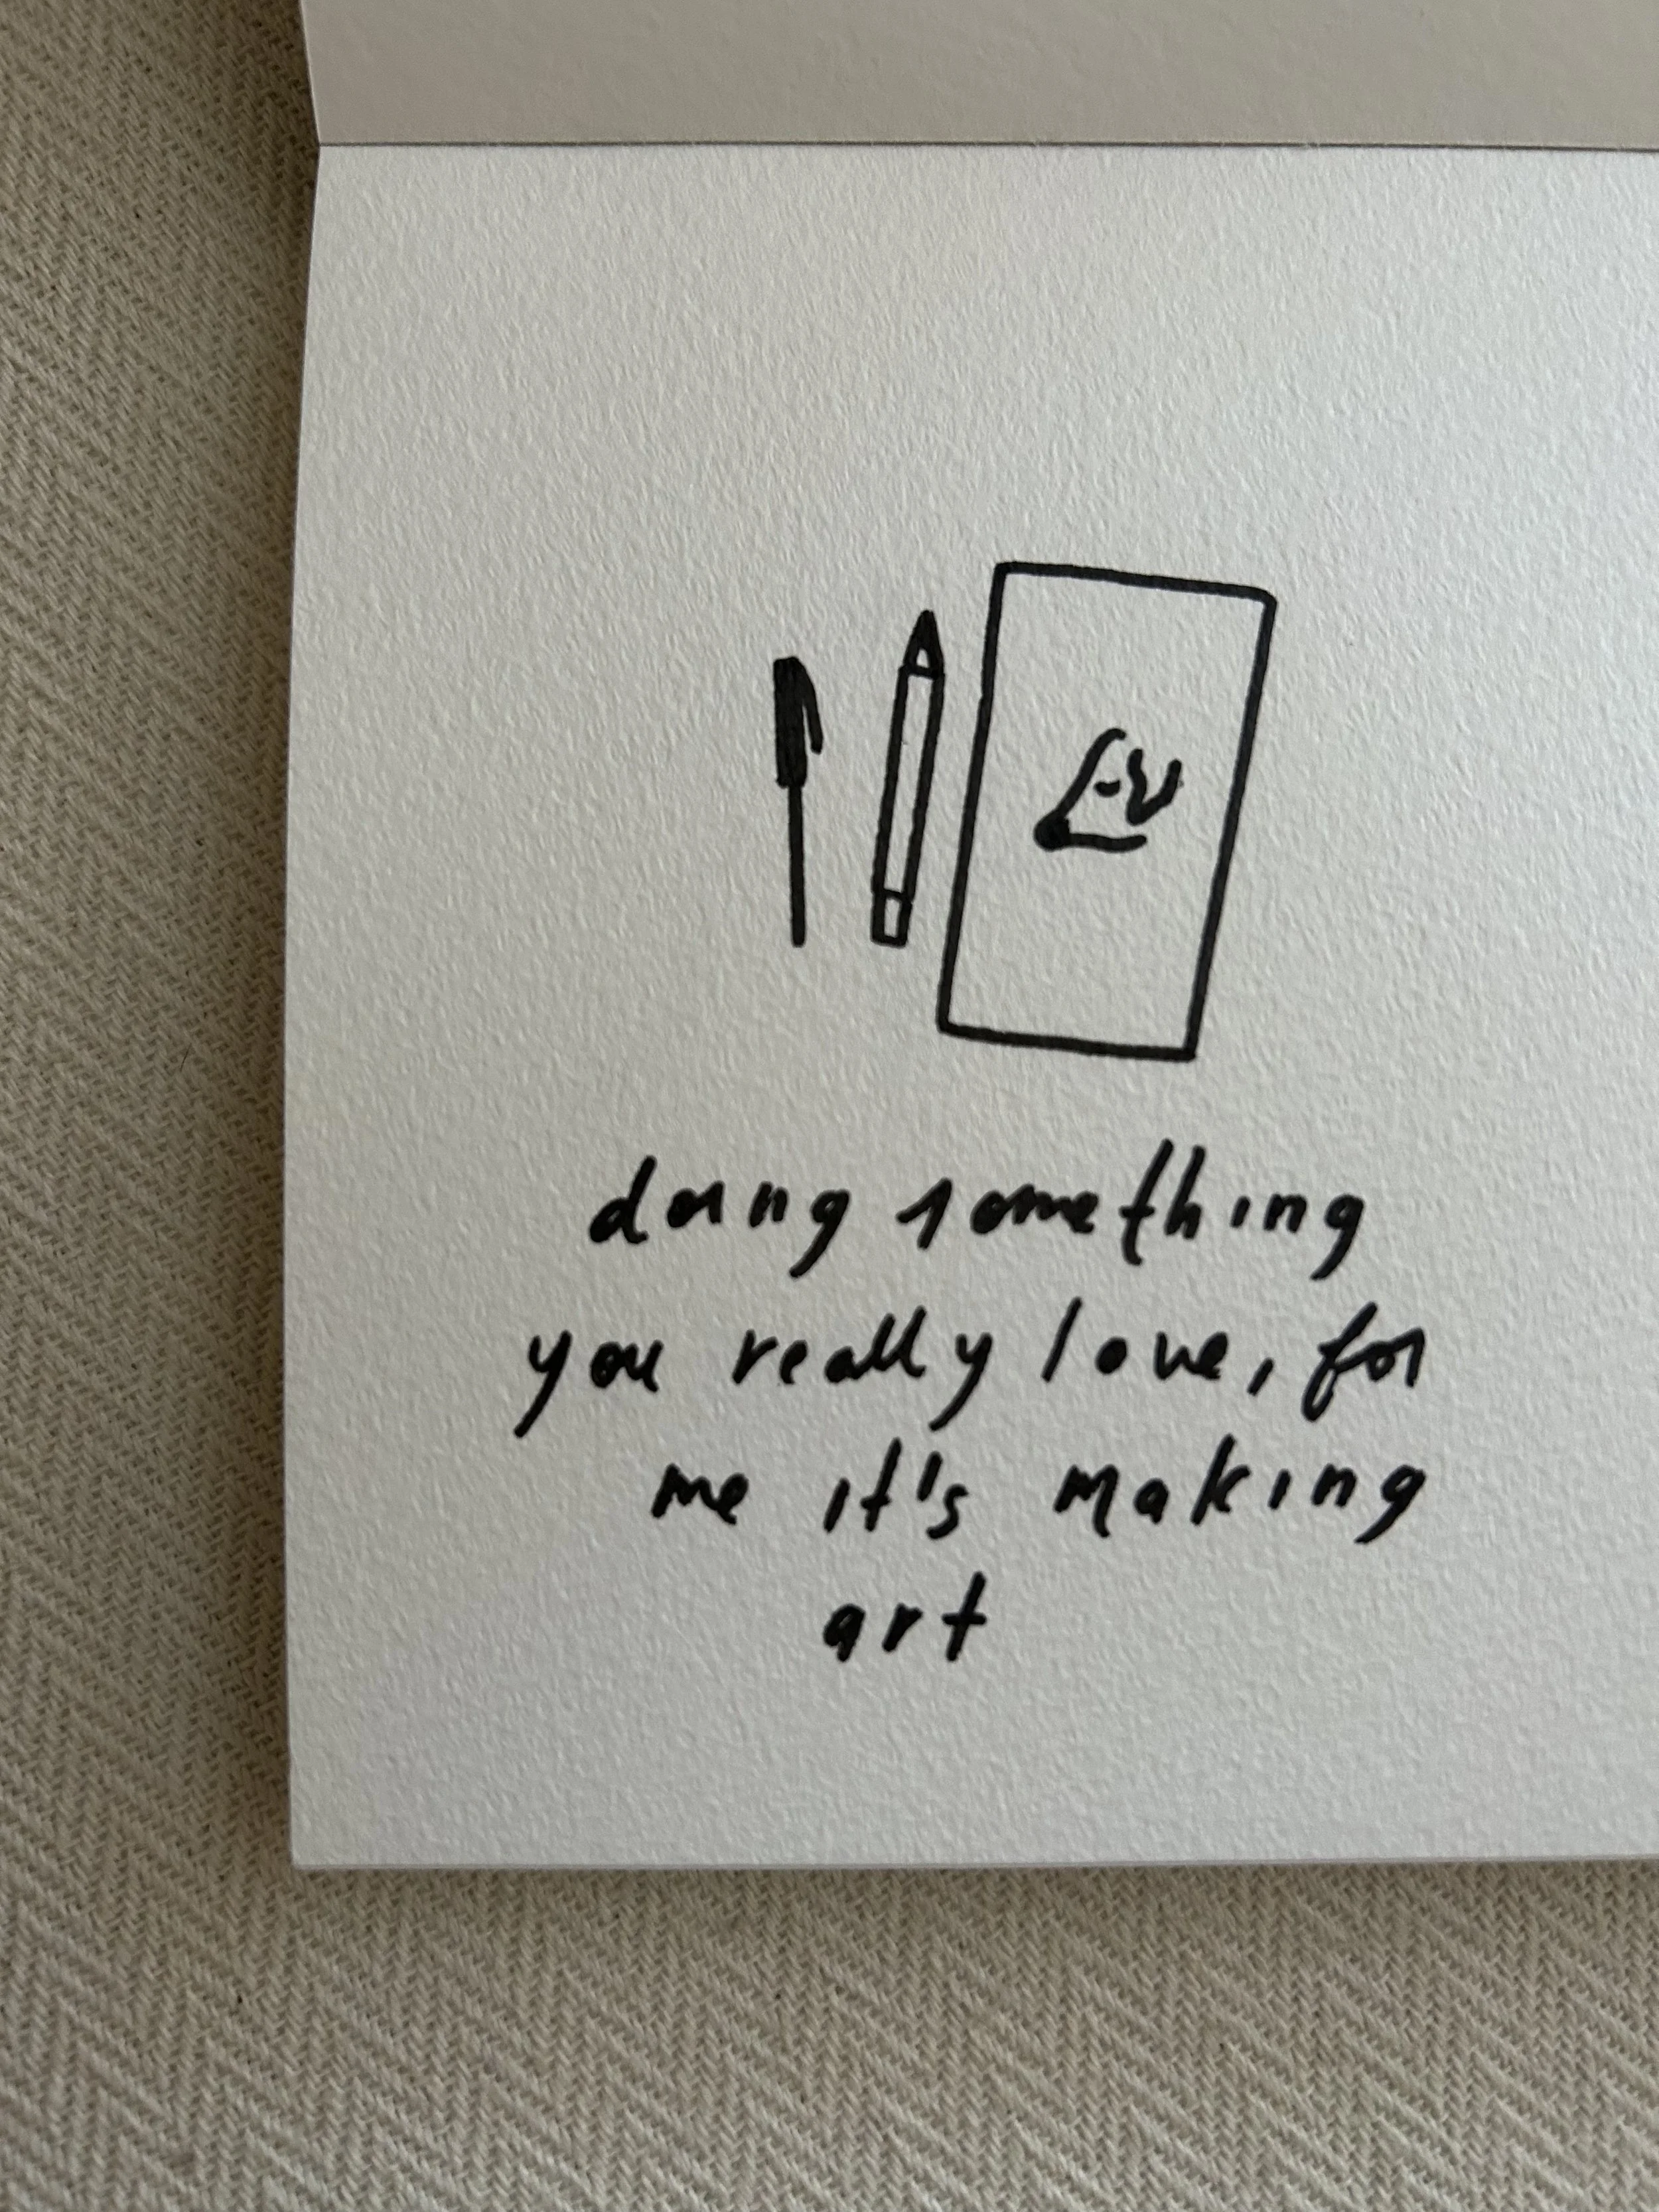 doing something
you really love, for
me it's making
art